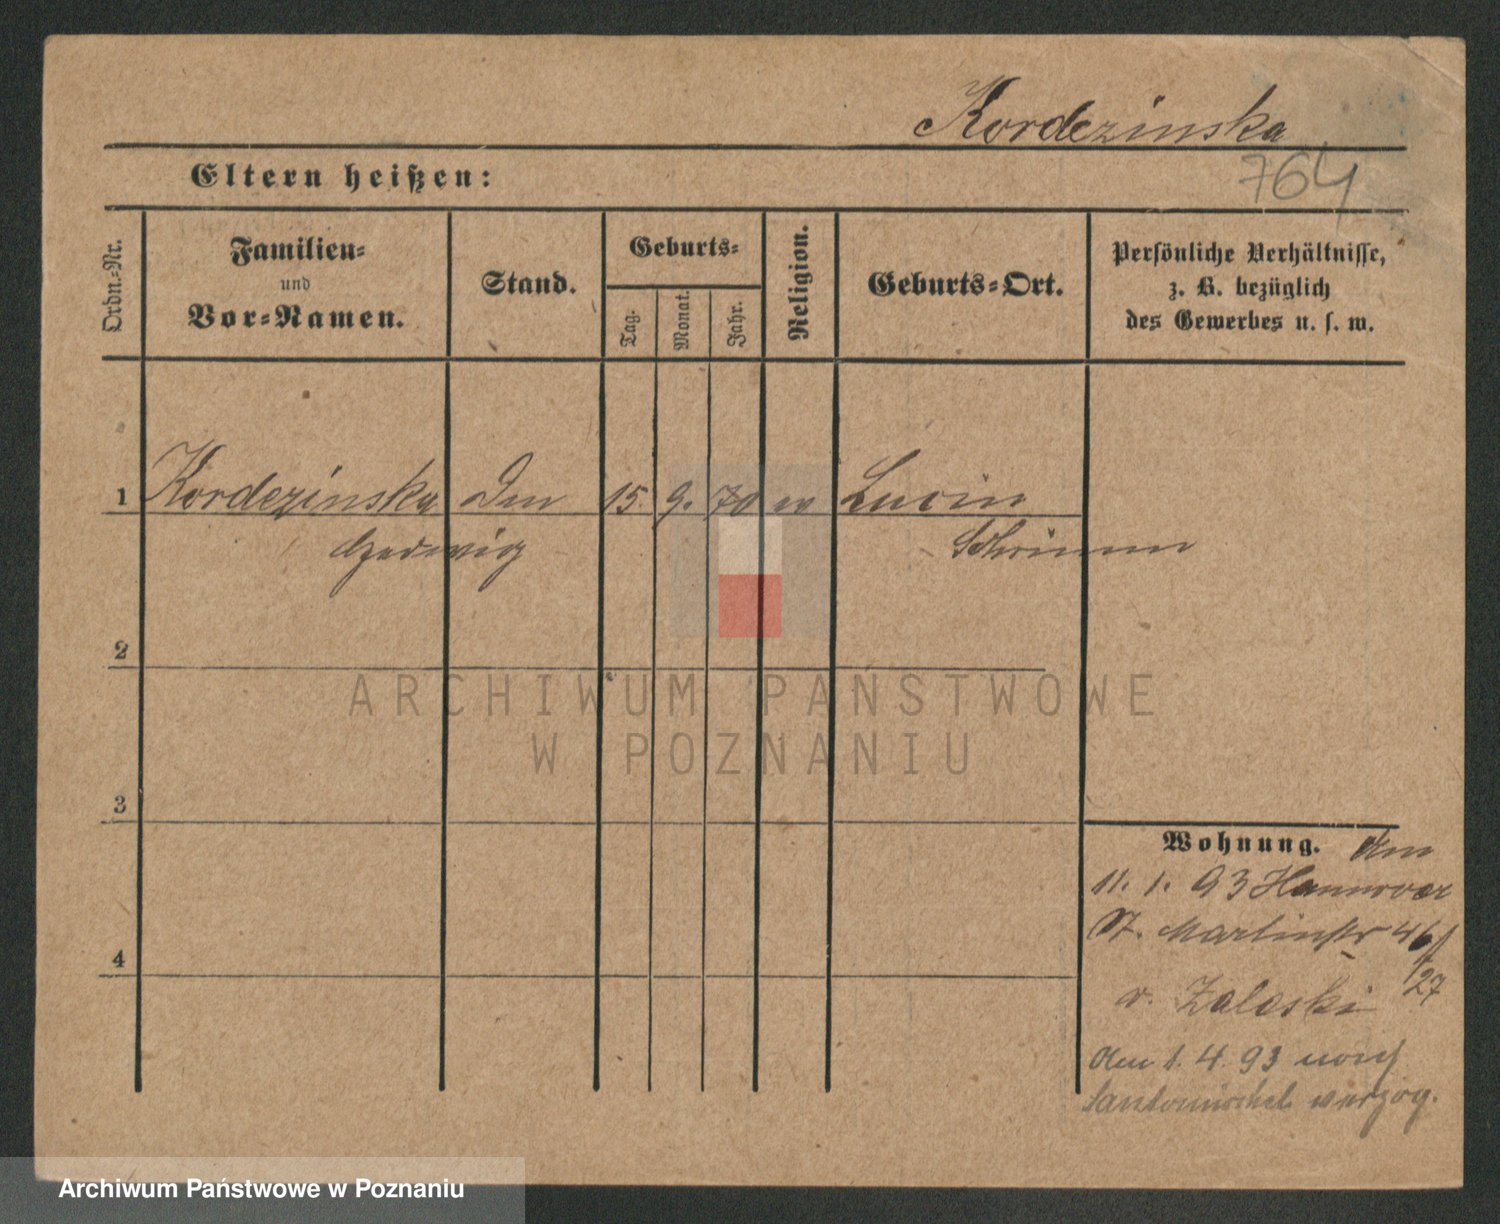 Kordezinska
764
Eltern heißen:
Ordn.-Nr.
Familien-
und
Vor-Namen.
Stand.
Geburts-
Tag.
Monat.
Jahr.
Religion.
Geburts-Ort.
Persönliche Verhältnisse,
z. B. bezüglich
des Gewerbes u. s. w.
1 Kordezinska 15. 9. 70 Lucin
Hedwig Schrimm
2
ARCHIWUM PAŃSTWOWE
W POZNANIU
3
Wohnung. den
11. 1. 93 Hannover
St. Martinstr 46/
27
v. Zaleski
4
den 1. 4. 93 nach
Santomischel verzog.
Archiwum Państwowe w Poznaniu